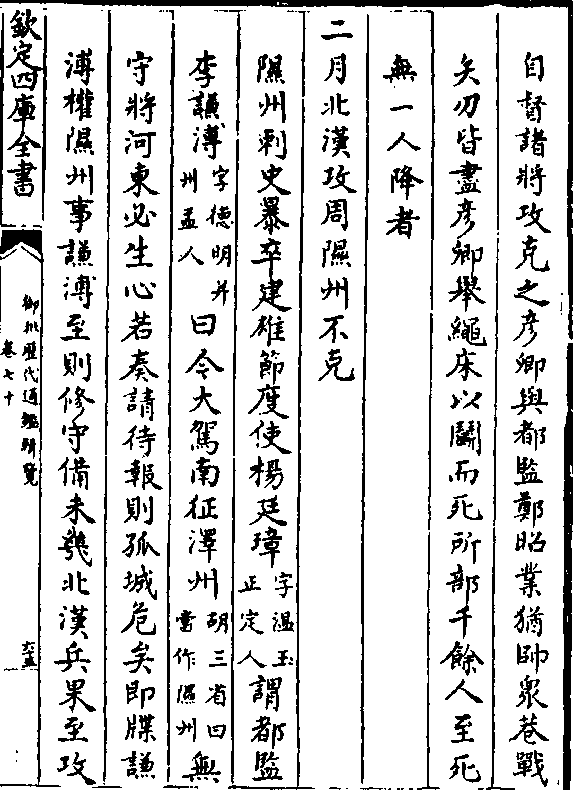 自督諸將攻克之彦卿與都監鄭昭業猶帥衆巷戰
矢刃皆盡彦卿舉繩床以鬭而死所部千餘人至死
無一人降者
二月北漢攻周隰州不克
隰州刺史暴卒建雄節度使楊廷璋字温玉真定人謂都監
李謙溥字德明并州孟人曰今大駕南征澤州胡三省曰當作隰州無
守將河東必生心若奏請待報則孤城危矣即牒謙
溥權隰州事謙溥至則修守備未幾北漢兵果至攻
欽定四庫全書
御批歷代通鑑輯覽
卷七十